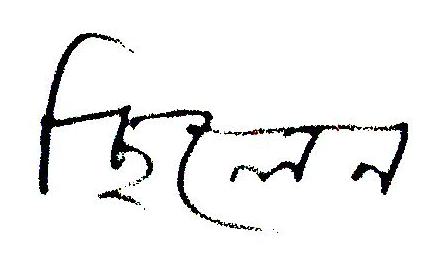 ছিলেন